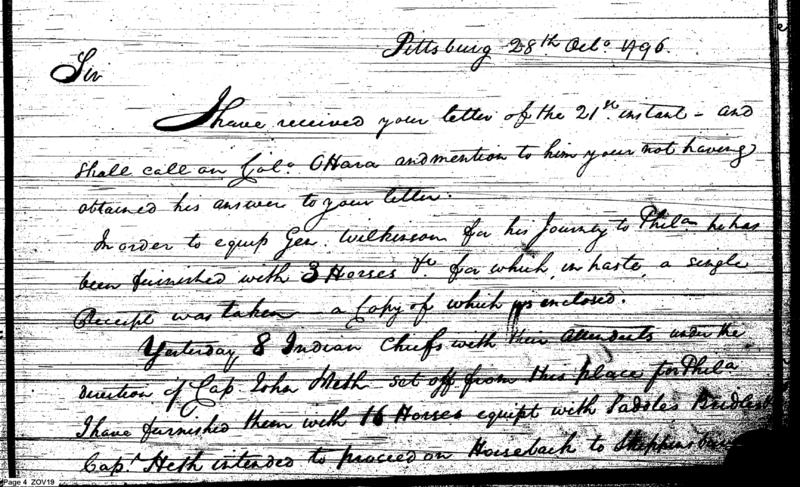 Pittsburg 28th Octo. 1796.
Sir
I have received your letter of the 21st. instant - and
shall call on Colo. OHara and mention to him your not having
obtained his answer to your letter.
In order to equip Gen. Wilkinson for his Journey to Phila he has
been furnished with 3 Horses &c for which, in haste, a single
Receipt was taken - a Copy of which is enclosed.
Yesterday 8 Indian Chiefs with their attendants under the
direction of Cap. John Heth set off from this place for Phila
I have furnished them with 16 Horses equipt with Saddles Bridles
Capt. Heth intended to proceed on Horseback to
Page 4 ZOV19